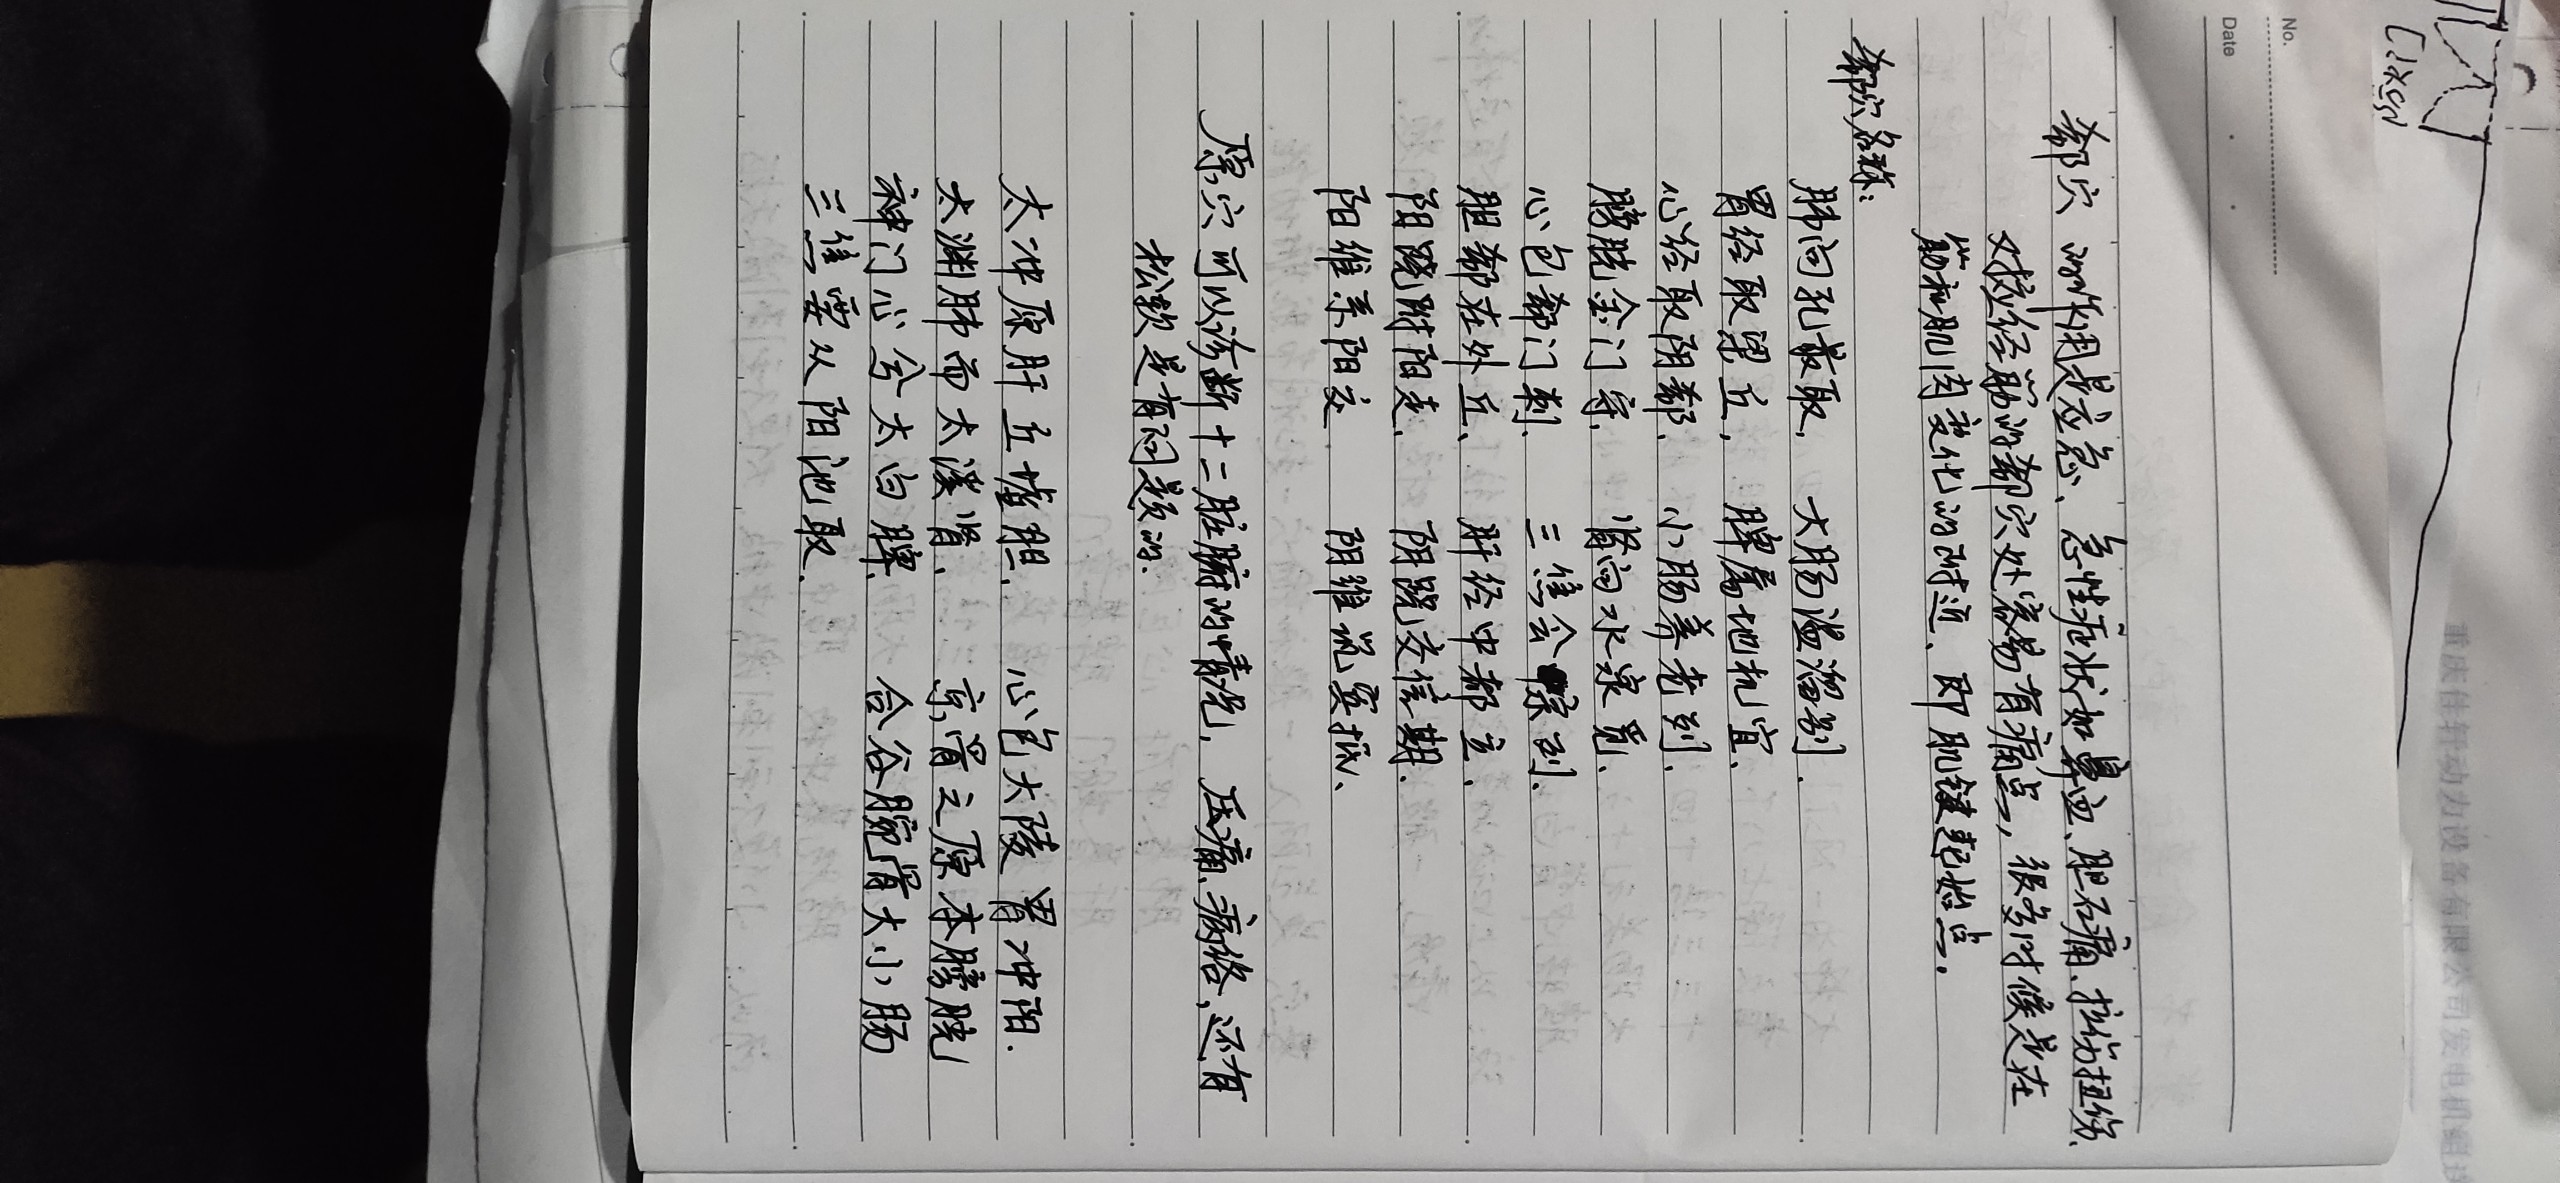 No.
Date
郄穴 的作用是应急、急性症状如鼻血、胆石痛、拉伤扭伤、
对应经筋的郄穴处容易有痛点，很多时候是在
筋和肌肉变化的附近、即肌键起始点.
郄穴名称：
肺向孔最取. 大肠温溜别.
胃经取梁丘. 脾属地机宜.
心经取阴郄. 小肠养老列.
膀胱金门守. 肾向水泉觅.
心包郄门刺. 三焦会宗到.
胆郄在外丘、 肝经中都立.
阳跷跗阳走. 阴跷交信期.
阳维系阳交. 阴维筑宾抵、
原穴可以诊断十二脏腑的情况, 压痛、病络,还有
松软是有问题的.
太冲原肝丘墟胆. 心包大陵胃冲阳.
太渊肺而太溪肾. 京骨之原本膀胱
神门心兮太白脾. 合谷腕骨大小肠
三焦要从阳池取.